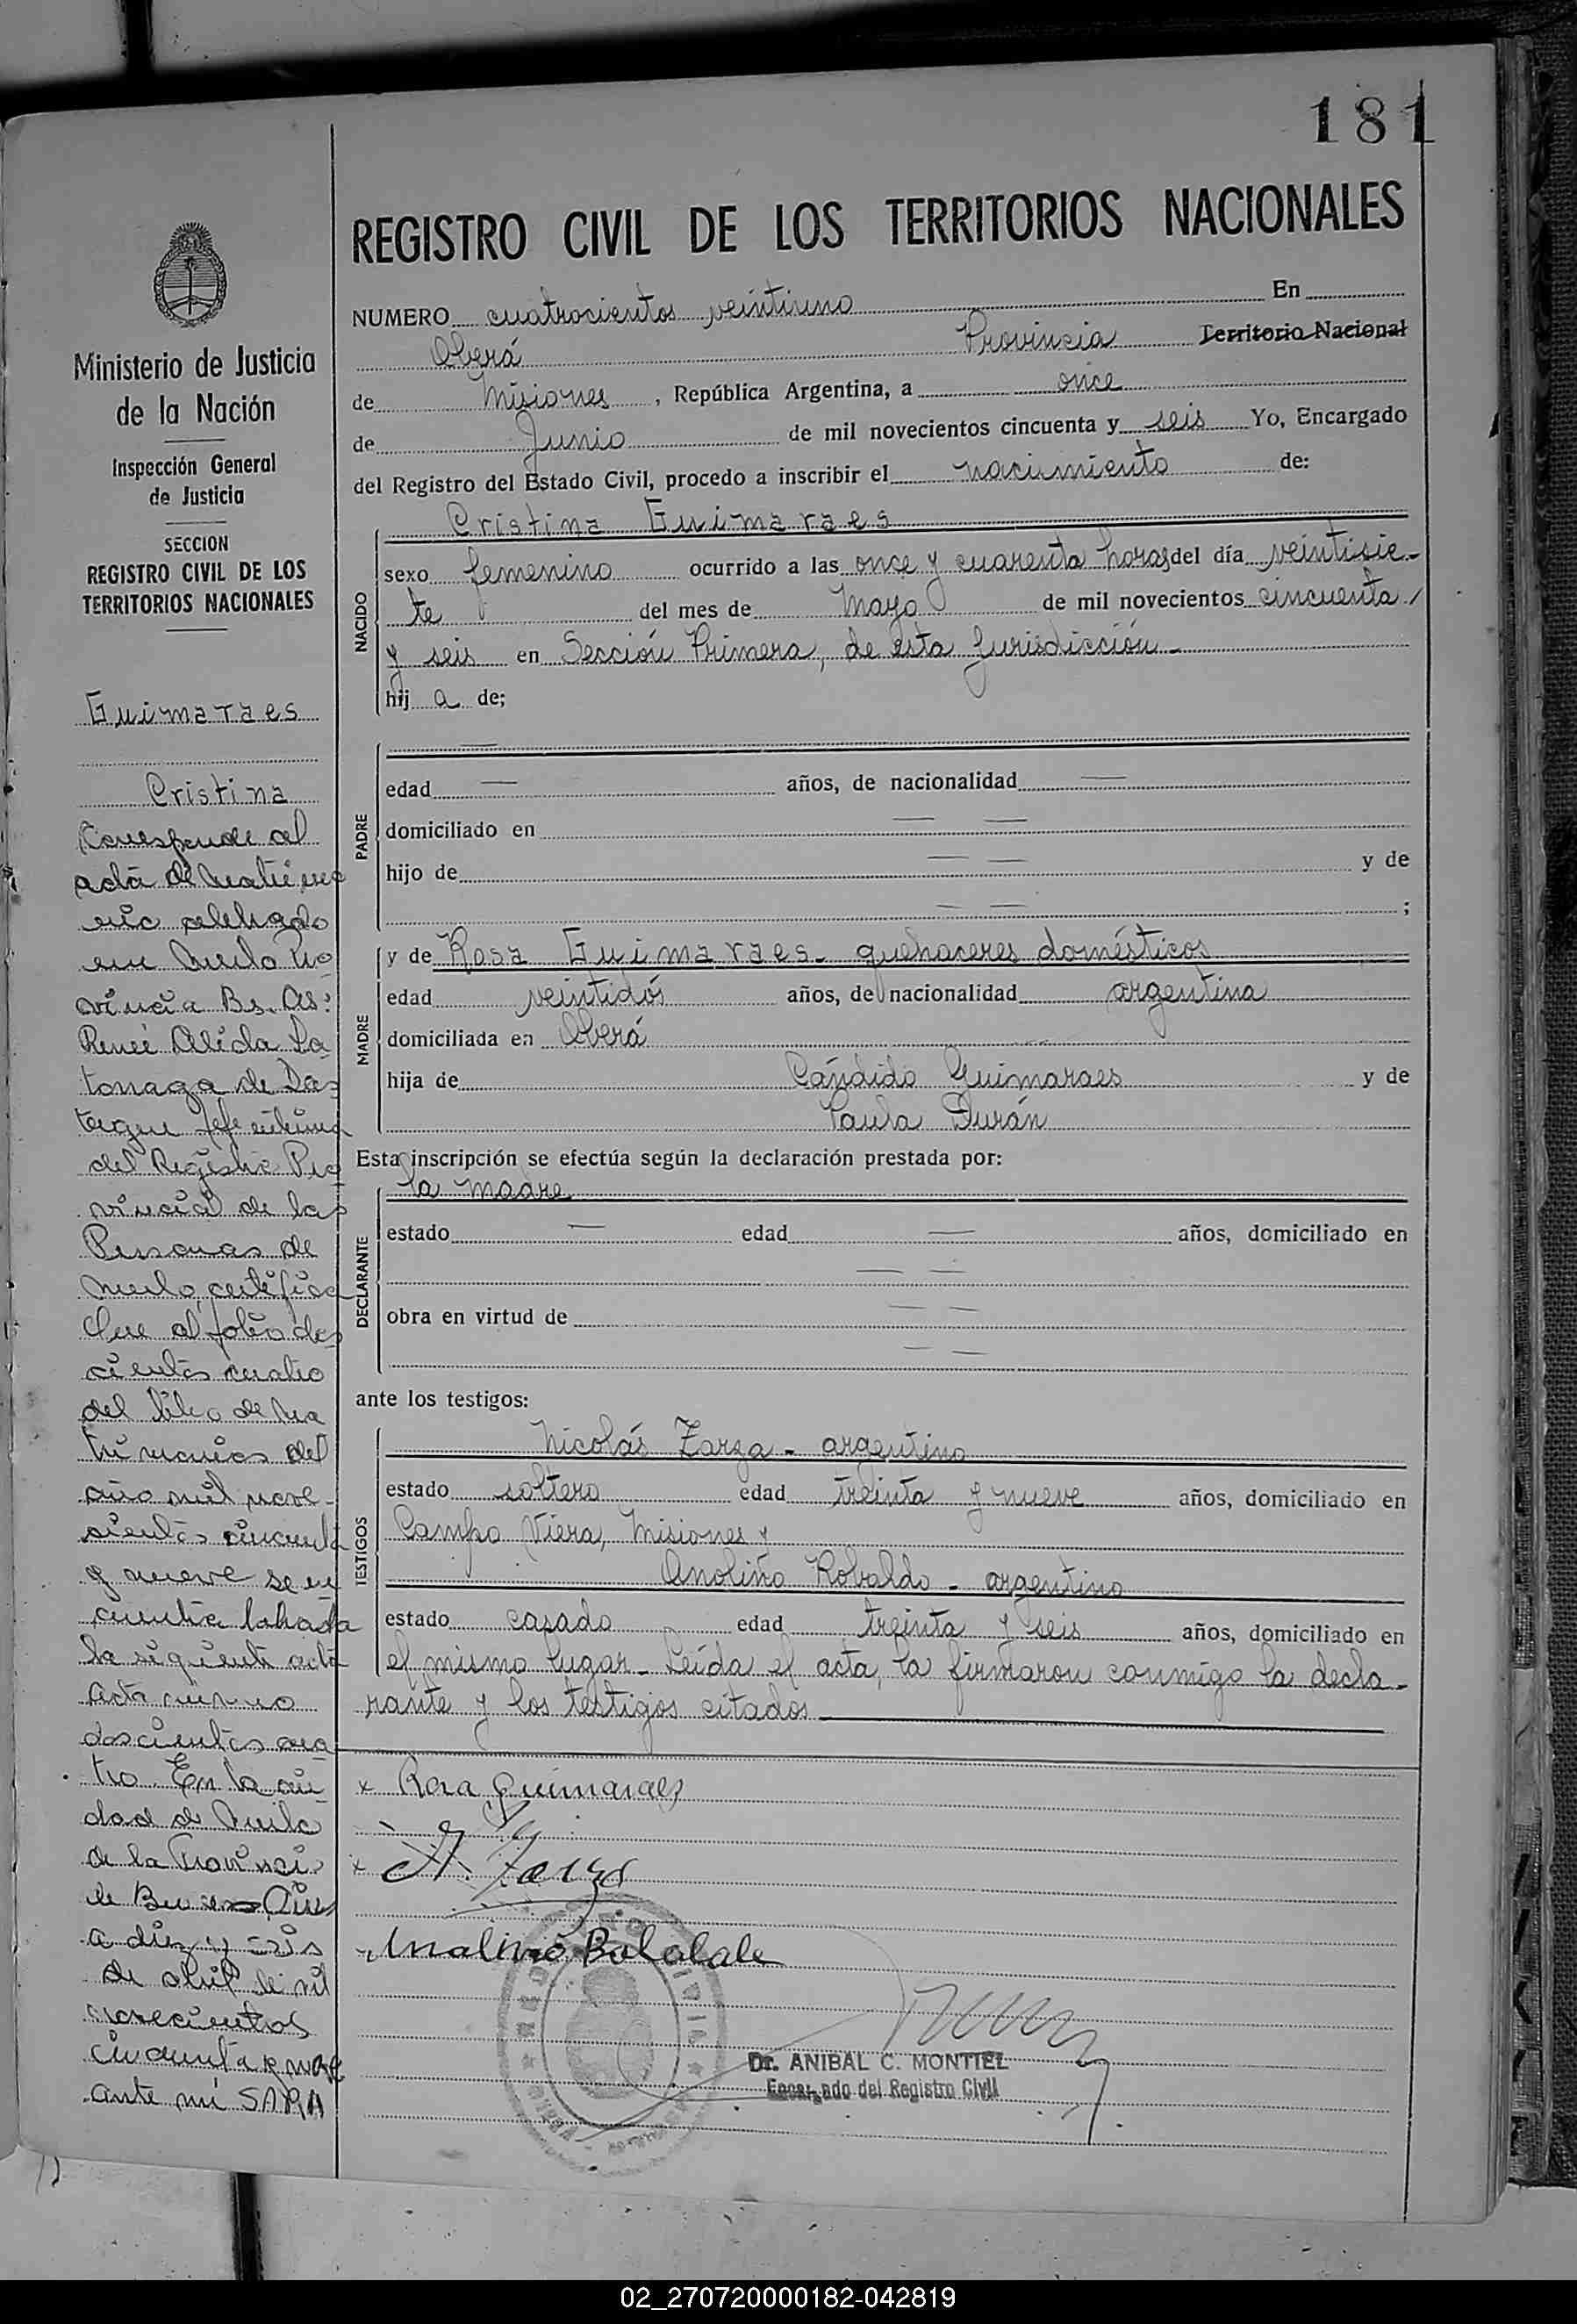 181
REGISTRO CIVIL DE LOS TERRITORIOS NACIONALES
Ministerio de Justicia
de la Nación
Inspección General
de Justicia
SECCION
REGISTRO CIVIL DE LOS
TERRITORIOS NACIONALES
Guimaraes
Cristina
Corresponde al
acta de matrimo
nio celebrado
en Merlo Pro
vincia Bs. As:
Reneé Alida La
de
Jefe interina
del Registro Pro
vincial de las
Personas de
Merlo, certifica
Que al folio dos
cientos cuatro
del libro de Ma
trimonios del
año mil nove-
cientos cincuenta
y nueve se en
cuentra labrada
la siguiente acta
acta número
doscientos cua
tro. En la ciu
dad de Merlo
de la Provinci
de Buenos Aires
a diez y seis
de abril de mil
novecientos
cincuenta y nueve
ante mí SARA
NUMERO cuatrocientos veintiuno En
Oberá Provincia Territorio Nacional
de Misiones, República Argentina, a once
de Junio de mil novecientos cincuenta y seis Yo, Encargado
del Registro del Estado Civil, procedo a inscribir el nacimiento de:
NACIDO
Cristina Guimaraes
sexo femenino ocurrido a las once y cuarenta horas del día veintisie-
te del mes de Mayo de mil novecientos cincuenta
y seis en Sección Primera, de esta Jurisdicción-
hij a de;
PADRE
—
edad — años, de nacionalidad —
domiciliado en — —
hijo de — — y de
— — ;
MADRE
y de Rosa Guimaraes- quehaceres domésticos
edad veintidós años, de nacionalidad argentina
domiciliada en Oberá
hija de Cándido Guimaraes y de
Paula Durán
Esta inscripción se efectúa según la declaración prestada por:
DECLARANTE
la madre
estado — edad — años, domiciliado en
— —
obra en virtud de — —
— —
ante los testigos:
TESTIGOS
Nicolás Zarza - argentino
estado soltero edad treinta y nueve años, domiciliado en
Campo Viera, Misiones y
Anoliño Robaldo - argentino
estado casado edad treinta y seis años, domiciliado en
el mismo lugar- Leída el acta, la firmaron conmigo la decla-
rante y los testigos citados
x Rosa Guimaraes
x N. Zarza
Dr. ANIBAL C. MONTIEL
Encargado del Registro Civil
02_270720000182-042819